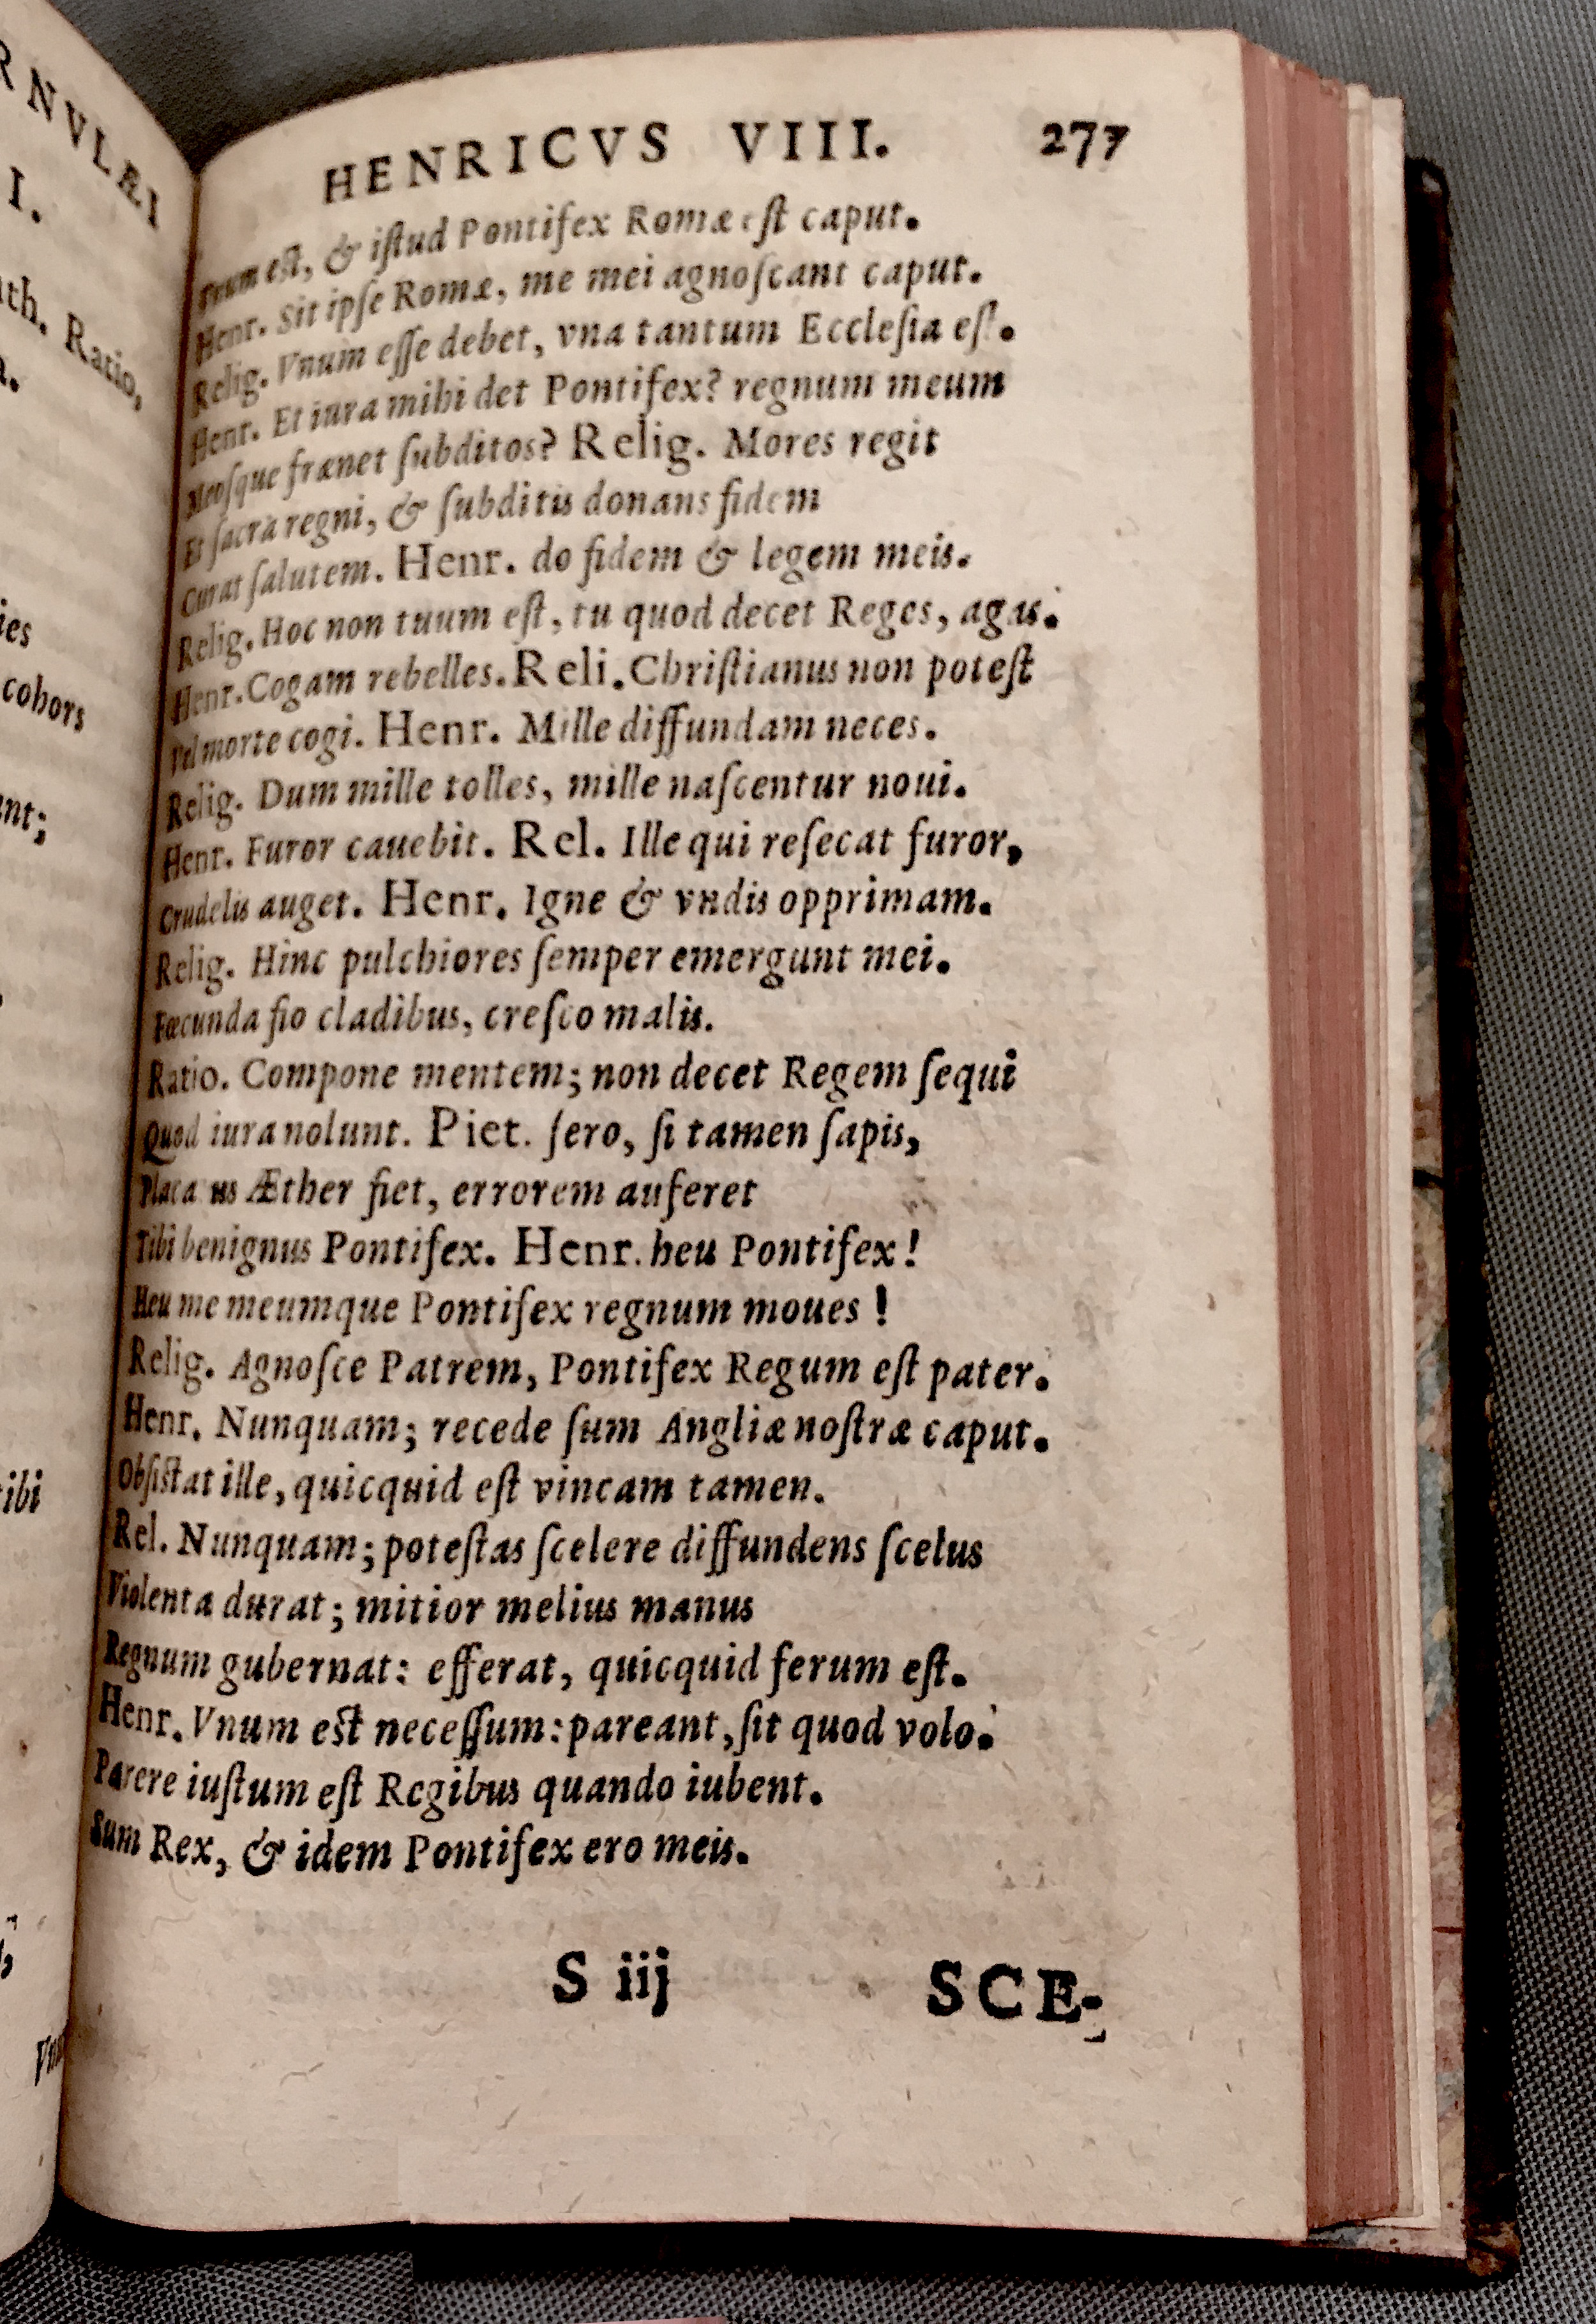 RNVLÆI
I.
ith. Ratio,
ies
cohors
nt;
tibi
HENRICVS VIII. 277
est, & iſtud Pontifex Romæ eſt caput.
Henr. Sit ipſe Romæ, me mei agnoſcant caput.
Relig. Vnum eſſe debet, vna tantum Eccleſia eſt.
Henr. Et iura mihi det Pontifex? regnum meum
Meoſque frænet ſubditos? Relig. Mores regit
Et ſacra regni, & ſubditis donans fidem
Curat ſalutem. Henr. do fidem & legem meis.
Relig. Hoc non tuum eſt, tu quod decet Reges, agas.
Henr. Cogam rebelles. Reli. Chriſtianus non poteſt
Vel morte cogi. Henr. Mille diffundam neces.
Relig. Dum mille tolles, mille naſcentur noui.
Henr. Furor cauebit. Rel. Ille qui reſecat furor,
Crudelis auget. Henr. Igne & vndis opprimam.
Relig. Hinc pulchiores ſemper emergunt mei.
Fœcunda fio cladibus, creſco malis.
Ratio. Compone mentem; non decet Regem ſequi
Quod iura nolunt. Piet. ſero, ſi tamen ſapis,
Placa us Æther fiet, errorem auferet
Tibi benignus Pontifex. Henr. heu Pontifex!
Heu me meumque Pontifex regnum moues!
Relig. Agnoſce Patrem, Pontifex Regum eſt pater.
Henr. Nunquam; recede ſum Angliæ noſtræ caput.
Obſiſtat ille, quicquid eſt vincam tamen.
Rel. Nunquam; poteſtas ſcelere diffundens ſcelus
Violenta durat; mitior melius manus
Regnum gubernat: efferat, quicquid ferum eſt.
Henr. Vnum eſt neceſſum: pareant, ſit quod volo.
Parere iuſtum eſt Regibus quando iubent.
Sum Rex, & idem Pontifex ero meis.
S iij SCE-